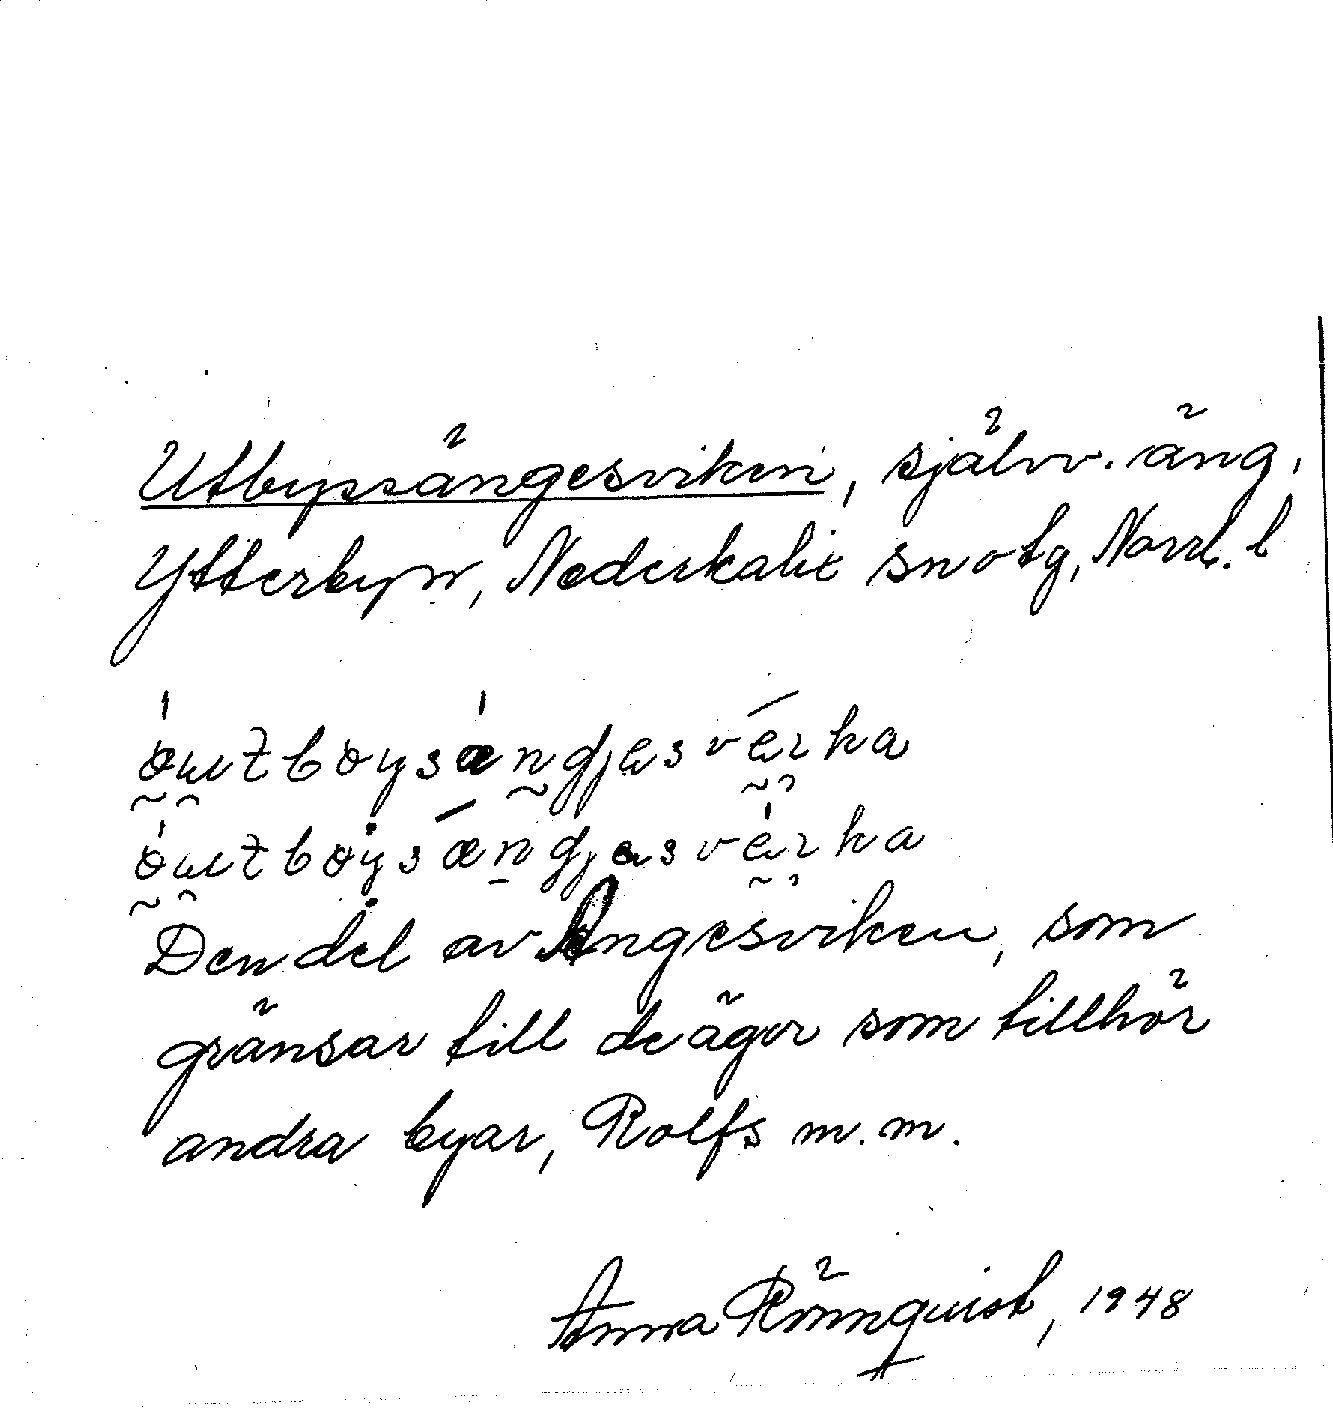 Utbynsängesviken, självv. äng,
Ytterbyn, Nederkalix sn o tg, Norrb. l
Den del av Ängesviken, som
gränsar till de ägor som tillhör
andra byar, Rolfs m.m.
Anna Rönnquist, 1948